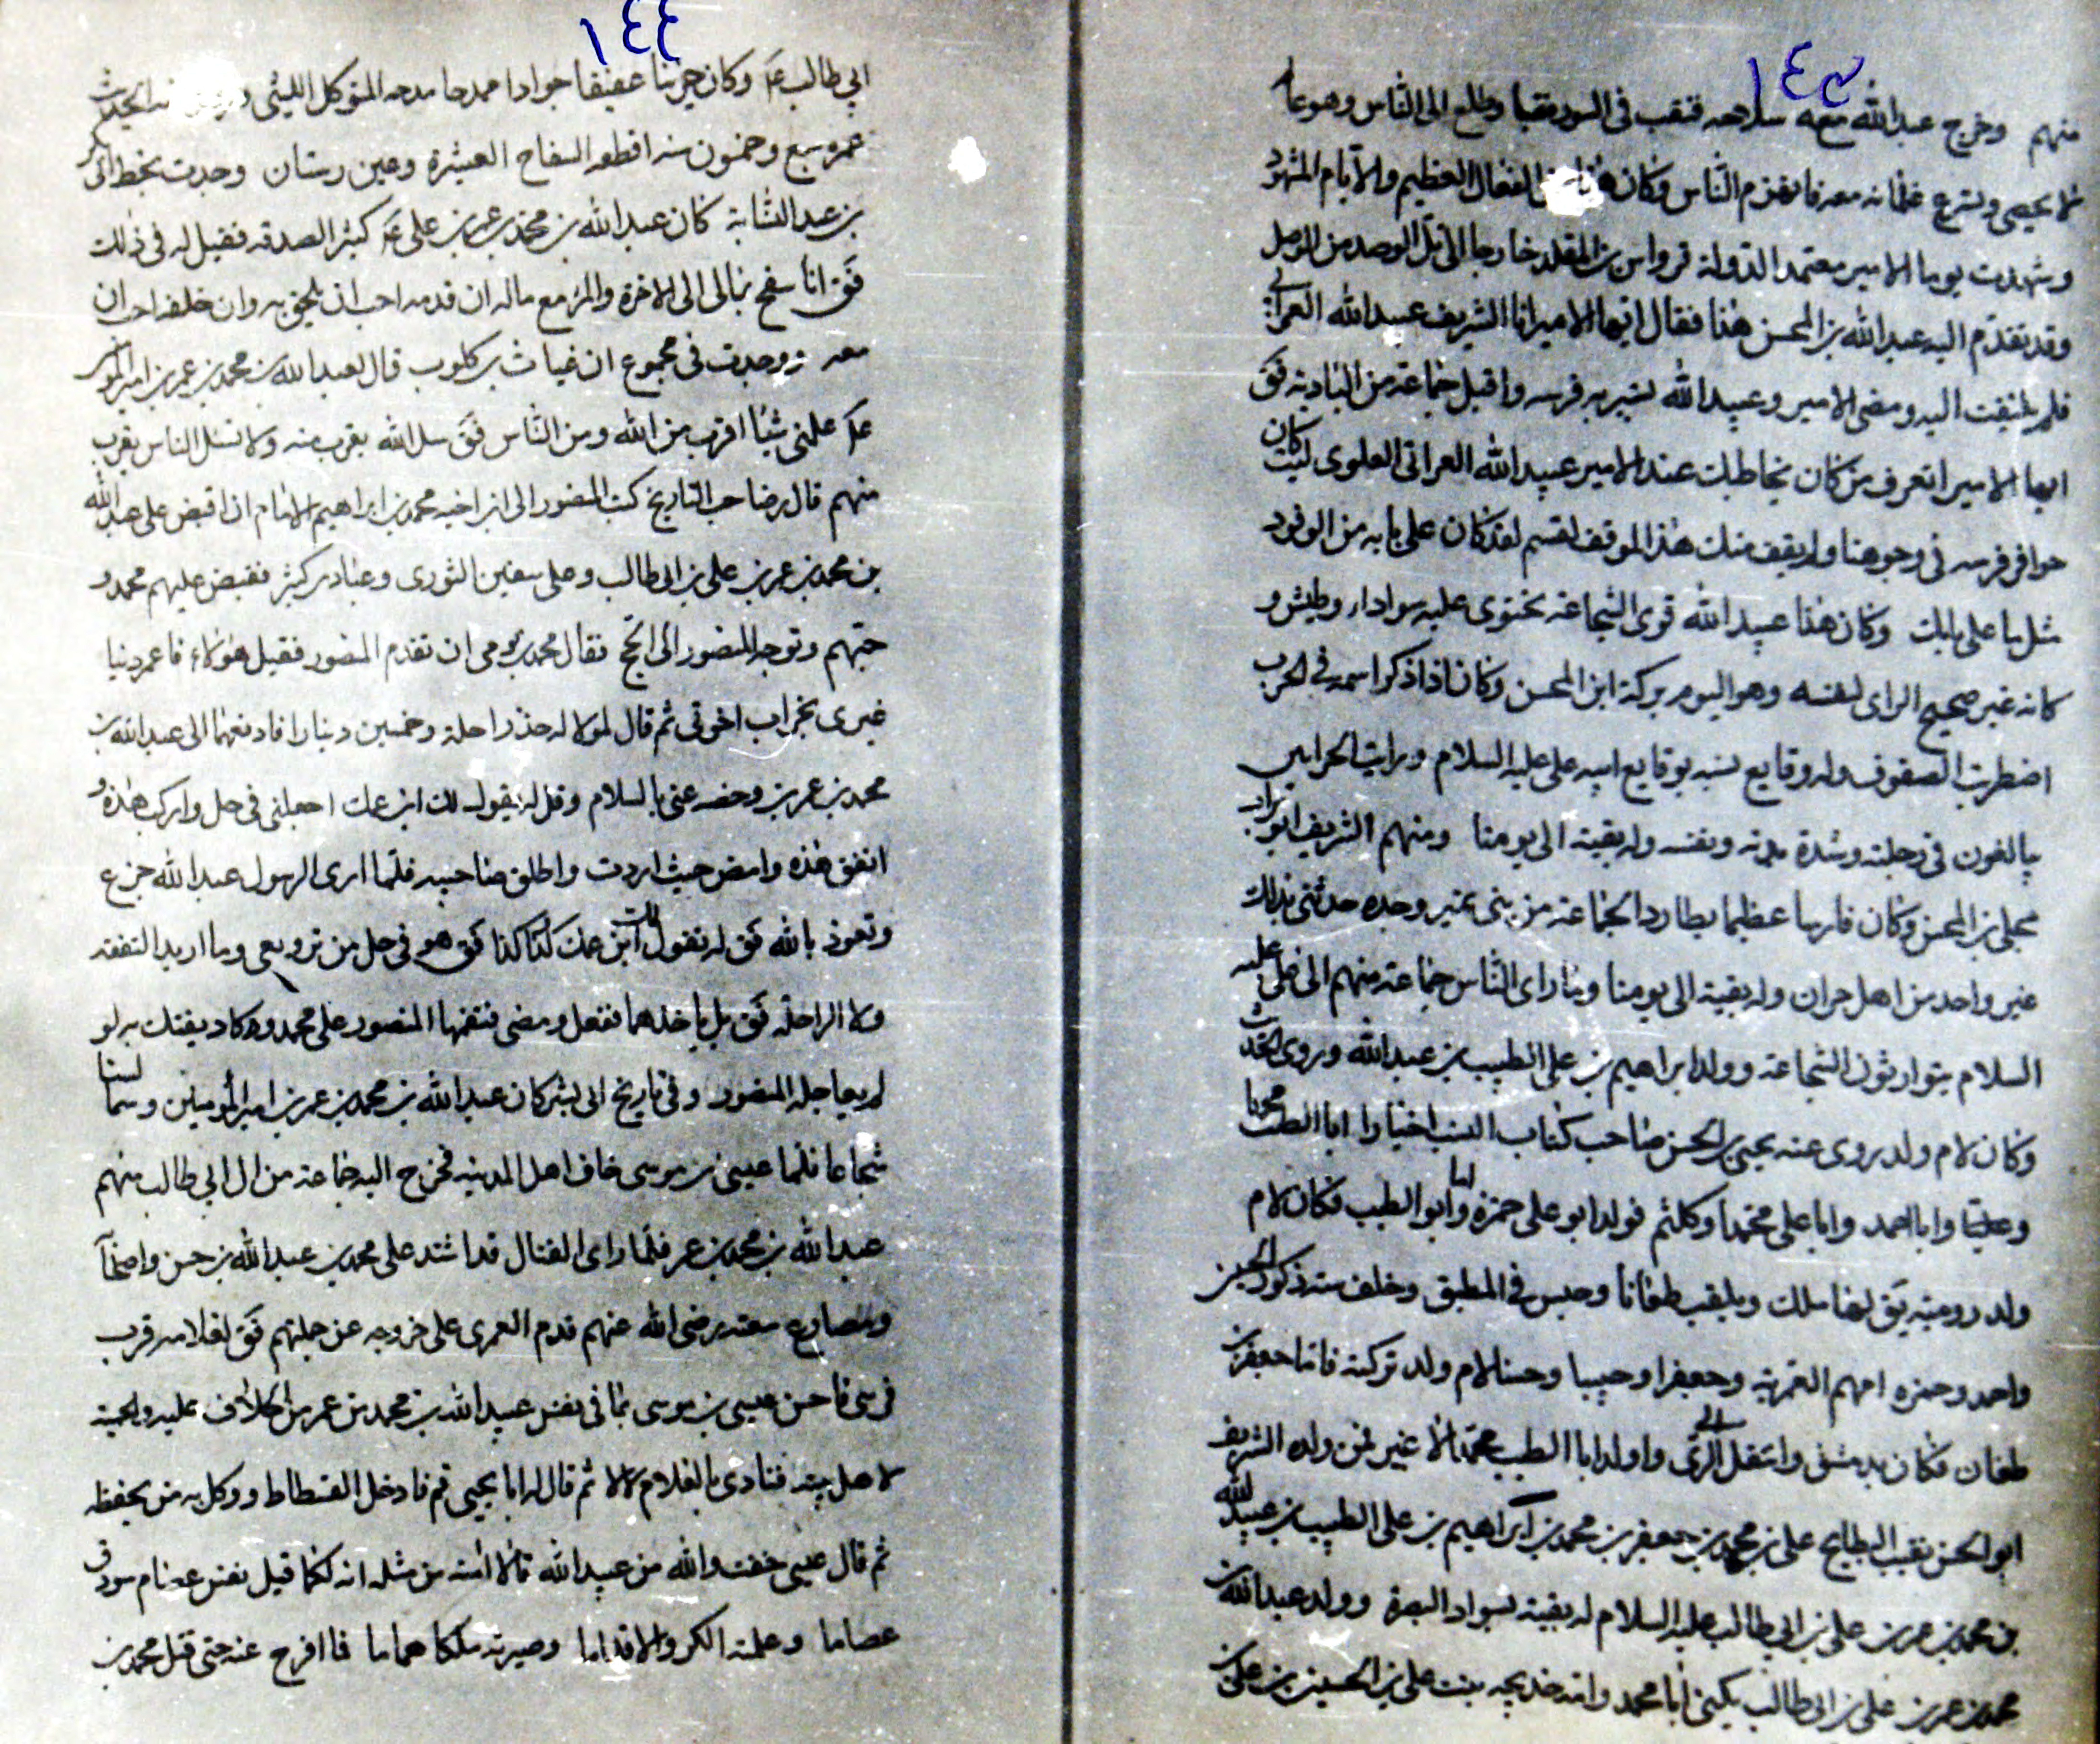 ١٤٣
منهم وخرج عبدالله معه سلاحه فنقب فى السور نقبا وطلع الى الناس وهو عا
لا يحصى ويسرع غلمانه معه فانهزم الناس وكان هذا من الفعال العظيم والايام المشهود
وشهدت يوما الامير معتمد الدولة قرواس بن المقلد خارجا الى تل الوصد من الموصل
وقد تقدم اليه عبدالله بن المحسن هذا فقال ايها الامير انا الشريف عبيدالله العراقى
فلم يلتفت اليه ومضى الامير وعبيدالله يسير به فرسه واقبل جماعة من البادية فق
ايها الامير اتعرف من كان يخاطبك عند الامير عبيدالله العراقى العلوى ليت كان
حوافر فرسه فى وجوهنا ولم يقف منك هذا الموقف اقسم لقد كان على بابه من الوفود
مثل ما على بابك وكان هذا عبيدالله قوى الشجاعة يحتوى عليه سوادا، وطيش و
كانه غير صحيح الراى لنفسه وهو اليوم بركة ابن المحسن وكان اذا ذكر اسمه فى الحرب
اضطربت الصفوف وله وقايع تشبه بوقايع ابيه على عليه السلام ورايت الحرانيين
يبالغون فى رجلته وشدة بدنه ونفسه وله بقية الى يومنا ومنهم الشريف ابو تراب
مجلى بن المحسن وكان فارسا عظيما يطارد الجماعة من بنى نمير وحده حدثنى بذلك
غير واحد من اهل حران وله بقية الى يومنا وبنا راى الناس جماعة منهم الى على عليه
السلام يتوارثون الشجاعة وولد ابراهيم بن على الطيب بن عبدالله وروى الحديث
وكان لام ولد يروى عنه يحيى بن الحسن صاحب كتاب النسب اخبارا ابا الطيب محمدا
وعليا وابا احمد وابا على محمدا وكلثم فولد ابو على حمزة واما ابو الطيب فكان لام
ولد رومية يق لها ملك ويلقب طغانا وحبس فى المطبق وخلف ستة ذكور الحسين
واحمد وحمزه امهم العمرية وجعفرا وحبيبا وحسنا لام ولد تركية فاما جعفر بن
طغان فكان بدمشق وانتقل الى الرى واولد ابا الطيب محمدا لا غير فمن ولده الشريف
ابو الحسن نقيب البطايح على بن محمد بن جعفر بن محمد بن ابراهيم بن على الطيب بن عبيدالله
بن محمد بن عمر بن على بن ابي طالب عليه السلام له بقية بسواد البصرة وولد عبدالله بن
محمد بن عمر بن على بن ابى طالب يكنى ابا محمد وامه خديجه بنت على بن الحسين بن على بن
١٤٤
ابي طالب ع وكان عفيفا جوادا ممدحا مدحه المتوكل الليثى الحديث
عمره سبع وخمسون سنه اقطعه السفاح العشيرة وعين رستان وجدت بخط ابى
بن عبد النسابة كان عبدالله بن محمد بن عمر بن على ع كثير الصدقه فقيل له فى ذلك
فق انا سفح بمالى الى الاخرة والمرء مع ماله ان قدمه احب ان يلحق به وان خلفه احب ان
معه ووجدت فى مجموع ان غياث بن كلوب قال لعبدالله بن محمد بن عمر بن امير المؤمنين
ع علمنى شيئا اقرب من الله ومن الناس فق سل الله يقرب منه ولا تسئل الناس يقرب
منهم قال صاحب التاريخ كتب المنصور الى ابن اخيه محمد بن ابراهيم الامام ان اقبض على عبدالله
بن محمد بن عمر بن على بن ابى طالب وعلى سفين الثورى وعباد بن كثير فقبض عليهم محمد و
حبسهم وتوجه المنصور الى الحج فقال محمد يومى ان تقدم المنصور فقيل هؤلاء فاعمر دنيا
غيرى بخراب اخرتى ثم قال لمولا له خذ راحلة وخمسين دينارا فادفعهما الى عبدالله بن
محمد بن عمر بن وخصه عنى بالسلام وقل له يقول لك ابن عمك اجعلنى فى حل واركب هذه و
انفق هذه وامض حيث اردت واطلق صاحبيه فلما ارى الرسول عبدالله جزع
وتعوذ بالله فق له يقول لك ابن عمك كذا كذا فق هو فى حل من ترويعى وما اريد النفقه
ولا الراحلة فق بل ياخذهما ففعل ومضى فنقمها المنصور على محمد وكاد يفتك به لو
لم يعاجله المنصور وفى تاريخ ابى بشر كان عبدالله بن محمد بن عمر بن امير المؤمنين وسما لسنا
شجاعا فلما عيسى بن موسى خاف اهل المدينه فخرج اليه جماعة من ال ابي طالب منهم
عبدالله بن محمد بن عمر فلما راى القتال قد اشتد على محمد بن عبدالله بن حسن واصحابه
ومصارع معه رضى الله عنهم ندم العمرى على خروجه عن جملتهم فق لغلامه قرب
فرسى فاحس عيسى بن موسى بما فى نفس عبيدالله بن محمد بن عمر من الخلاف عليه والحمية
لاهل بيته فنادى بالغلام لا لا ثم قال له ابا يحيى قم فادخل الفسطاط ووكل به من يحفظه
ثم قال عيسى خفت والله من عبيدالله فانا لا امنه من مثله انه كما قيل نفس عصام سودت
عصاما وعلمته الكر والاقداما وصيرته ملكا هماما فما افرج عنه حتى قتل محمد بن